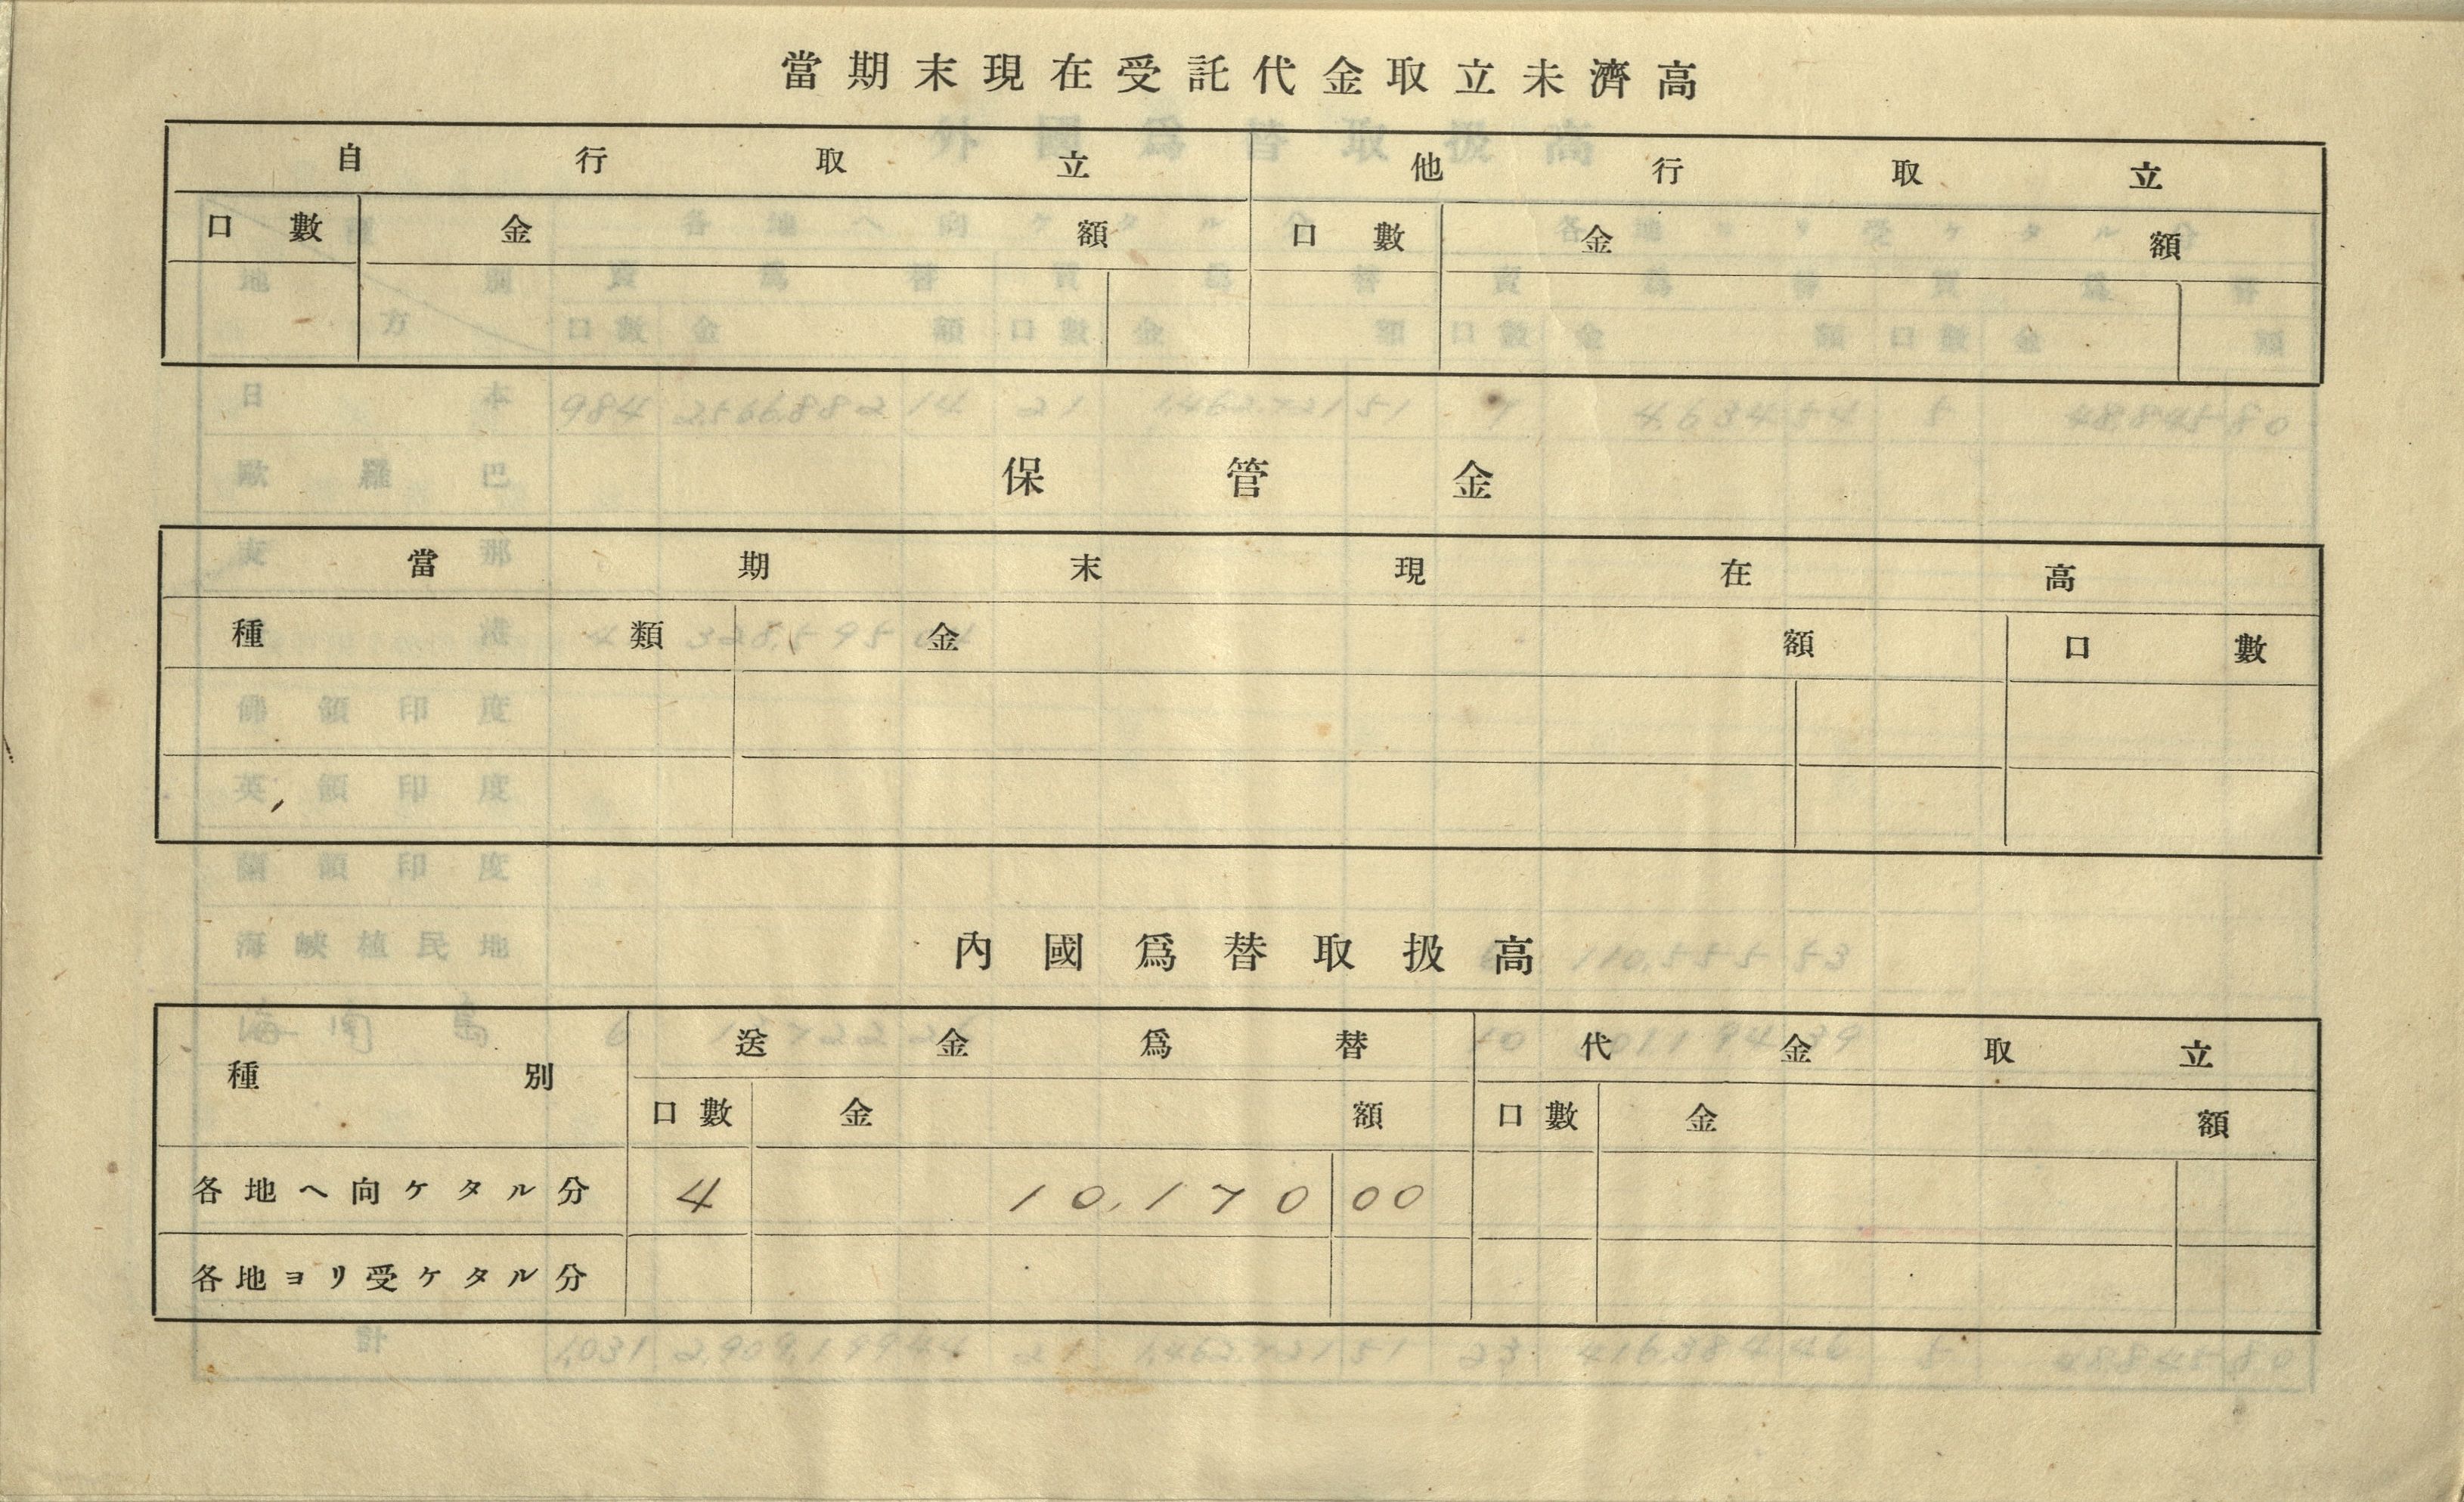 當期末現在受託代金取立未濟高
自行取立 他行取立
口數 金額 口數 金額
保管金
當期末現在高
種類 金額 口數
內國爲替取扱高
種別 送金爲替 代金取立
口數 金額 口數 金額
各地ヘ向ケタル分 4 10,170 00
各地ヨリ受ケタル分